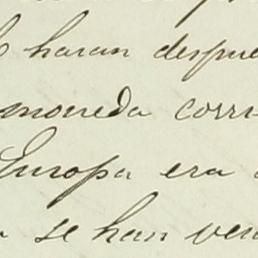 haran despue
moneda corri
Europa era
se han ven